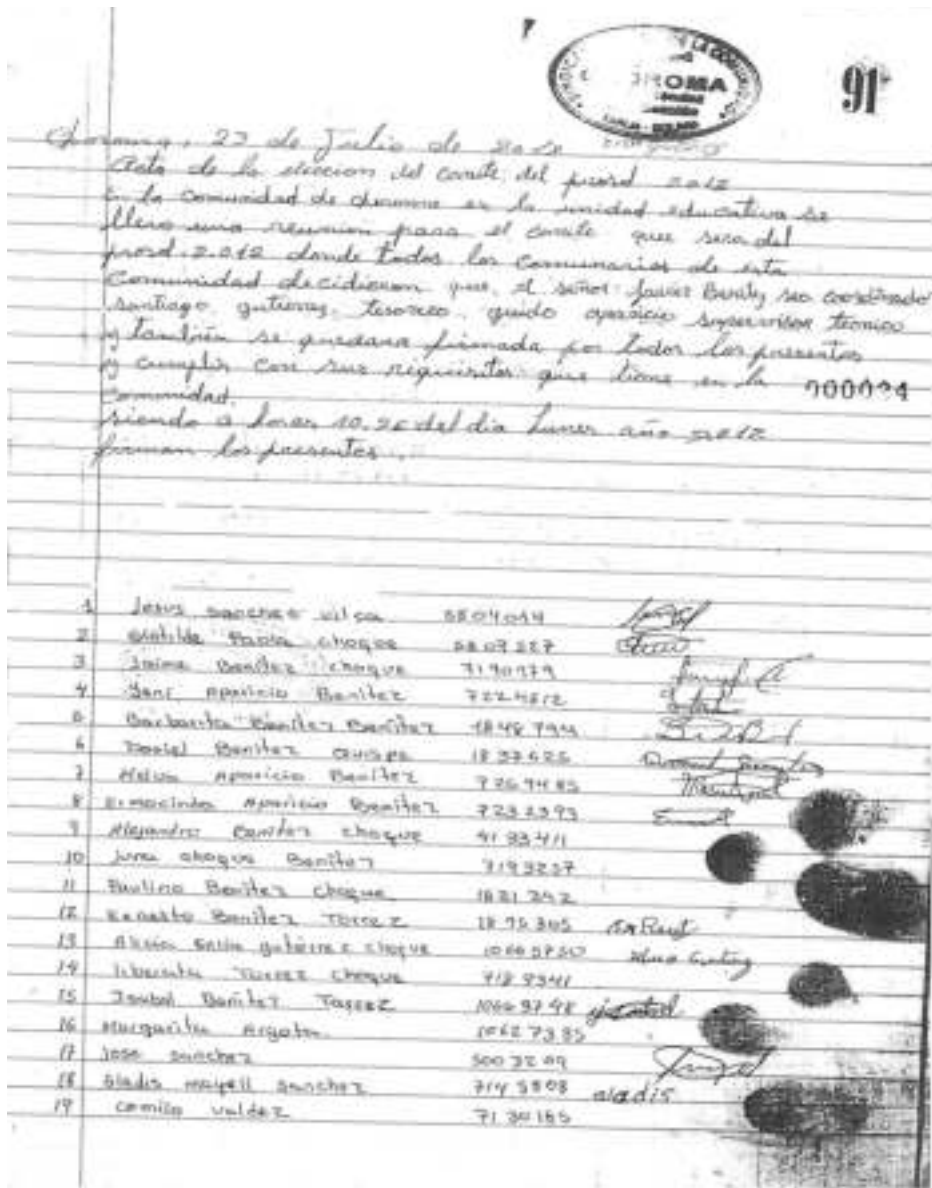 LA COMUNIDAD
OROMA
91
23 de Julio de 2012
Acta de la eleccion del comite del prosol 2012
en la comunidad de choroma en la unidad educativa se
llevo una reunion para el comite que sera del
prosol 2.012 donde todos los comunarios de esta
Comunidad decidieron que el señor Javier Benitez sea coordinado
santiago gutierrez tesorero guido aparicio supervisor tecnico
y tambien se quedara firmada por todos los presentes
y cumplir con sus requisitos que tiene en la
000034
comunidad.
siendo a horas 10.20 del dia lunes año 2012
firman los presentes
1 Jesus sanches vilca 5804014
2 Clotilde Paola choque 5807227
3 Jaime Benitez choque 7190979
4 Yeni Aparicio Benitez 7224812
5 Barbarita Benitez Benitez 1848794
6 Daniel Benitez Quispe 1837625
7 Melva Aparicio Benitez 7269485
8 Ermecinda Aparicio Benitez 7232393
9 Alejandro Benitez choque 4193411
10 Juna choque Benitez 7193257
11 Paulina Benitez choque 1821342
12 Ernesto Benitez Torrez 1875305
13 Alicia gutierrez choque 10665750
14 liberata Torrez choque 7189341
15 Isabel Benitez Torrez 10669748
16 Margarita Argota 10627385
17 jose sanchez 5003209
18 Gladis mayeli sanchez 7145808 Gladis
19 camilo valdez 7130165